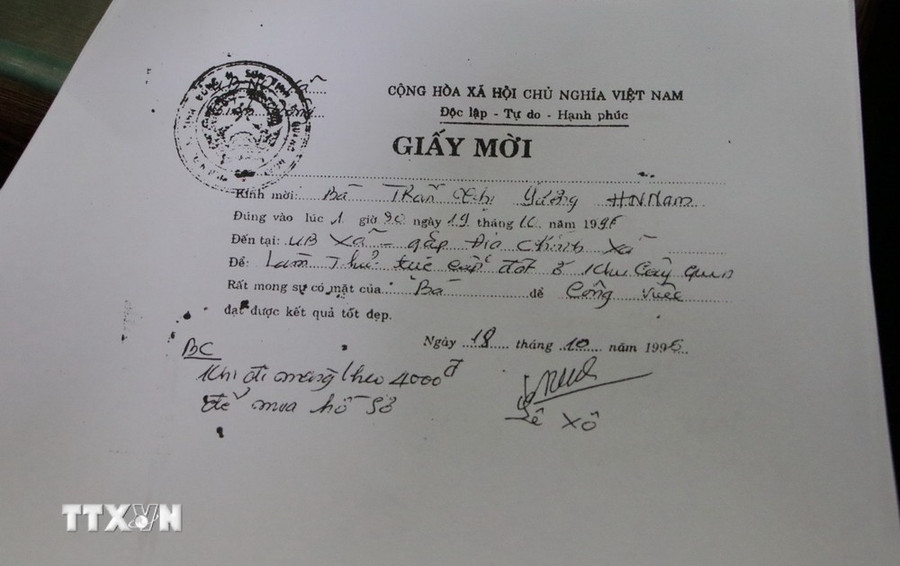 CỘNG HÒA XÃ HỘI CHỦ NGHĨA VIỆT NAM
Độc lập - Tự do - Hạnh phúc
GIẤY MỜI
Kính mời: Bà Trần Thị H.N.Nam
Đúng vào lúc 1 giờ 30 ngày 19 tháng 10 năm 1996
Đến tại: UB Xã - gặp Địa Chính Xã
Để: Làm Thủ tục cấp đất ở Khu Cây
Rất mong sự có mặt của Bà để Công việc
đạt được kết quả tốt đẹp.
Ngày 18 tháng 10 năm 1996
BC
Khi đi mang theo 4000đ
để mua hồ sơ
Lê Xô
TTXVN